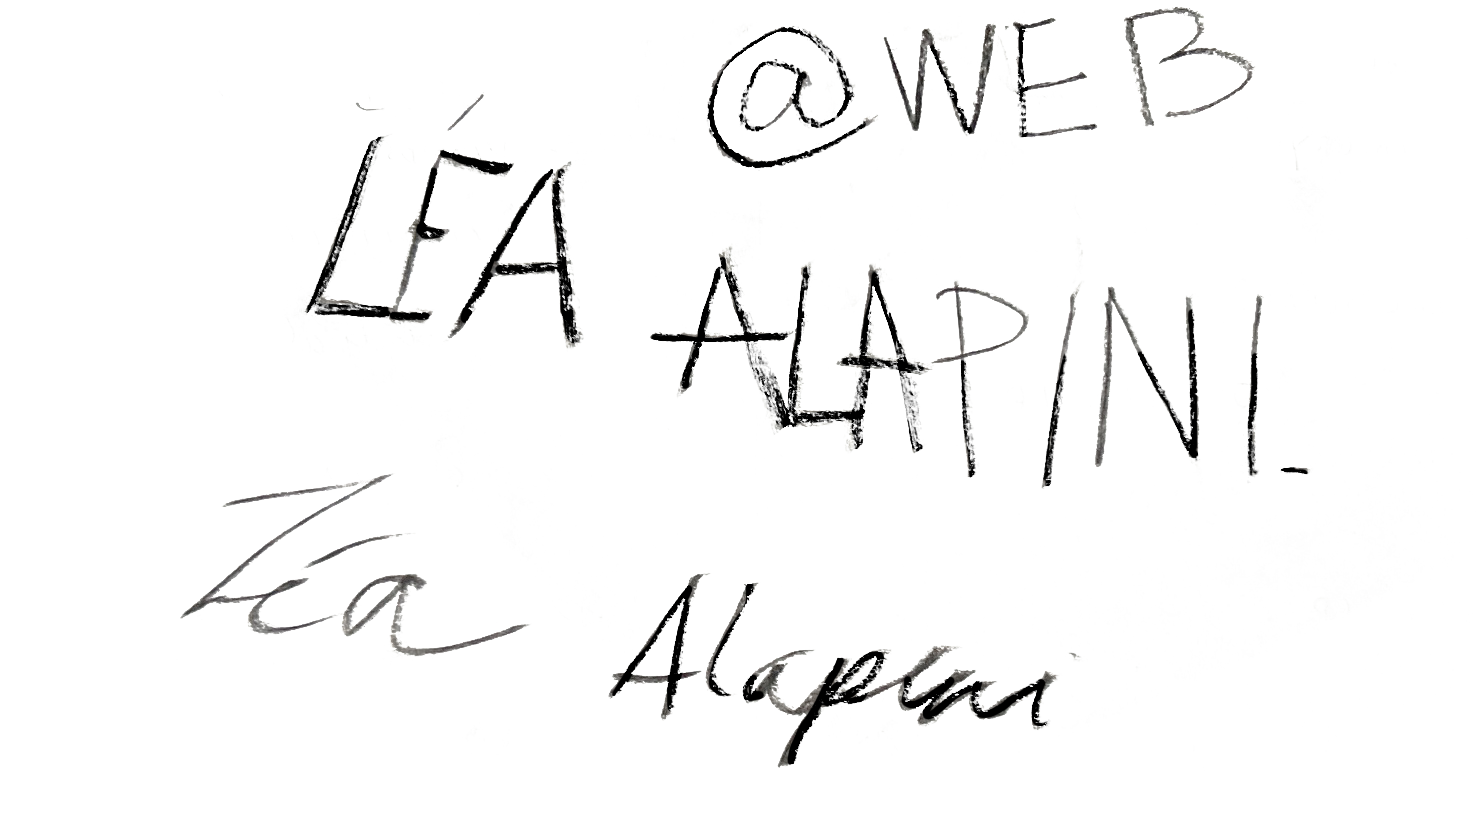 @WEB
LÉA
ALAPINI_
Léa
Alapini